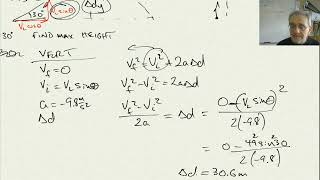 30°
Δdy
Vi sinθ
Vi cosθ
30° FIND MAX HEIGHT
VERT
Vf = 0
Vi = Vi sinθ
a = -9.8 m/s²
Δd
Vf² = Vi² + 2aΔd
Vf² - Vi² = 2aΔd
Vf² - Vi² / 2a = Δd
= 0 - (Vi sinθ)² / 2(-9.8)
= 0 - 49² sin²30 / 2(-9.8)
Δd = 30.6m